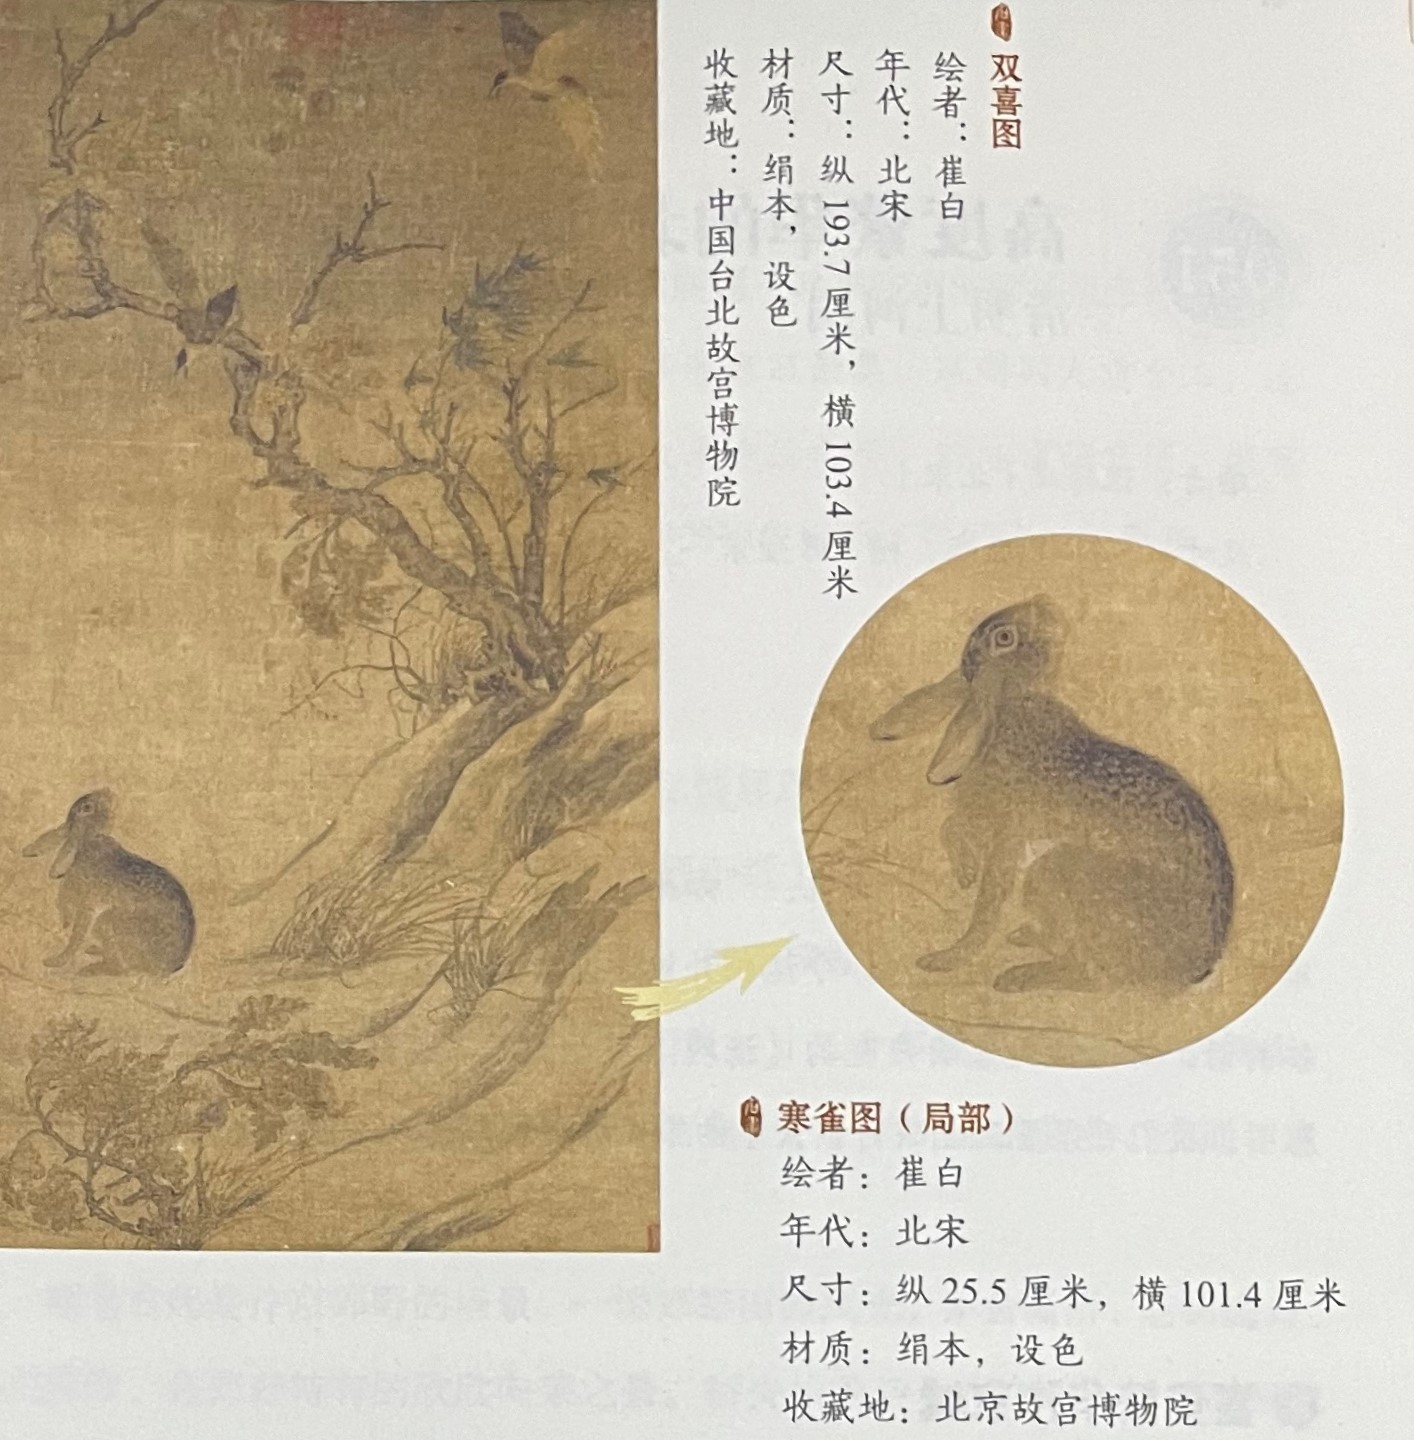 双喜图
绘者：崔白
年代：北宋
尺寸：纵 193.7 厘米，横 103.4 厘米
材质：绢本，设色
收藏地：中国台北故宫博物院
寒雀图（局部）
绘者：崔白
年代：北宋
尺寸：纵 25.5 厘米，横 101.4 厘米
材质：绢本，设色
收藏地：北京故宫博物院